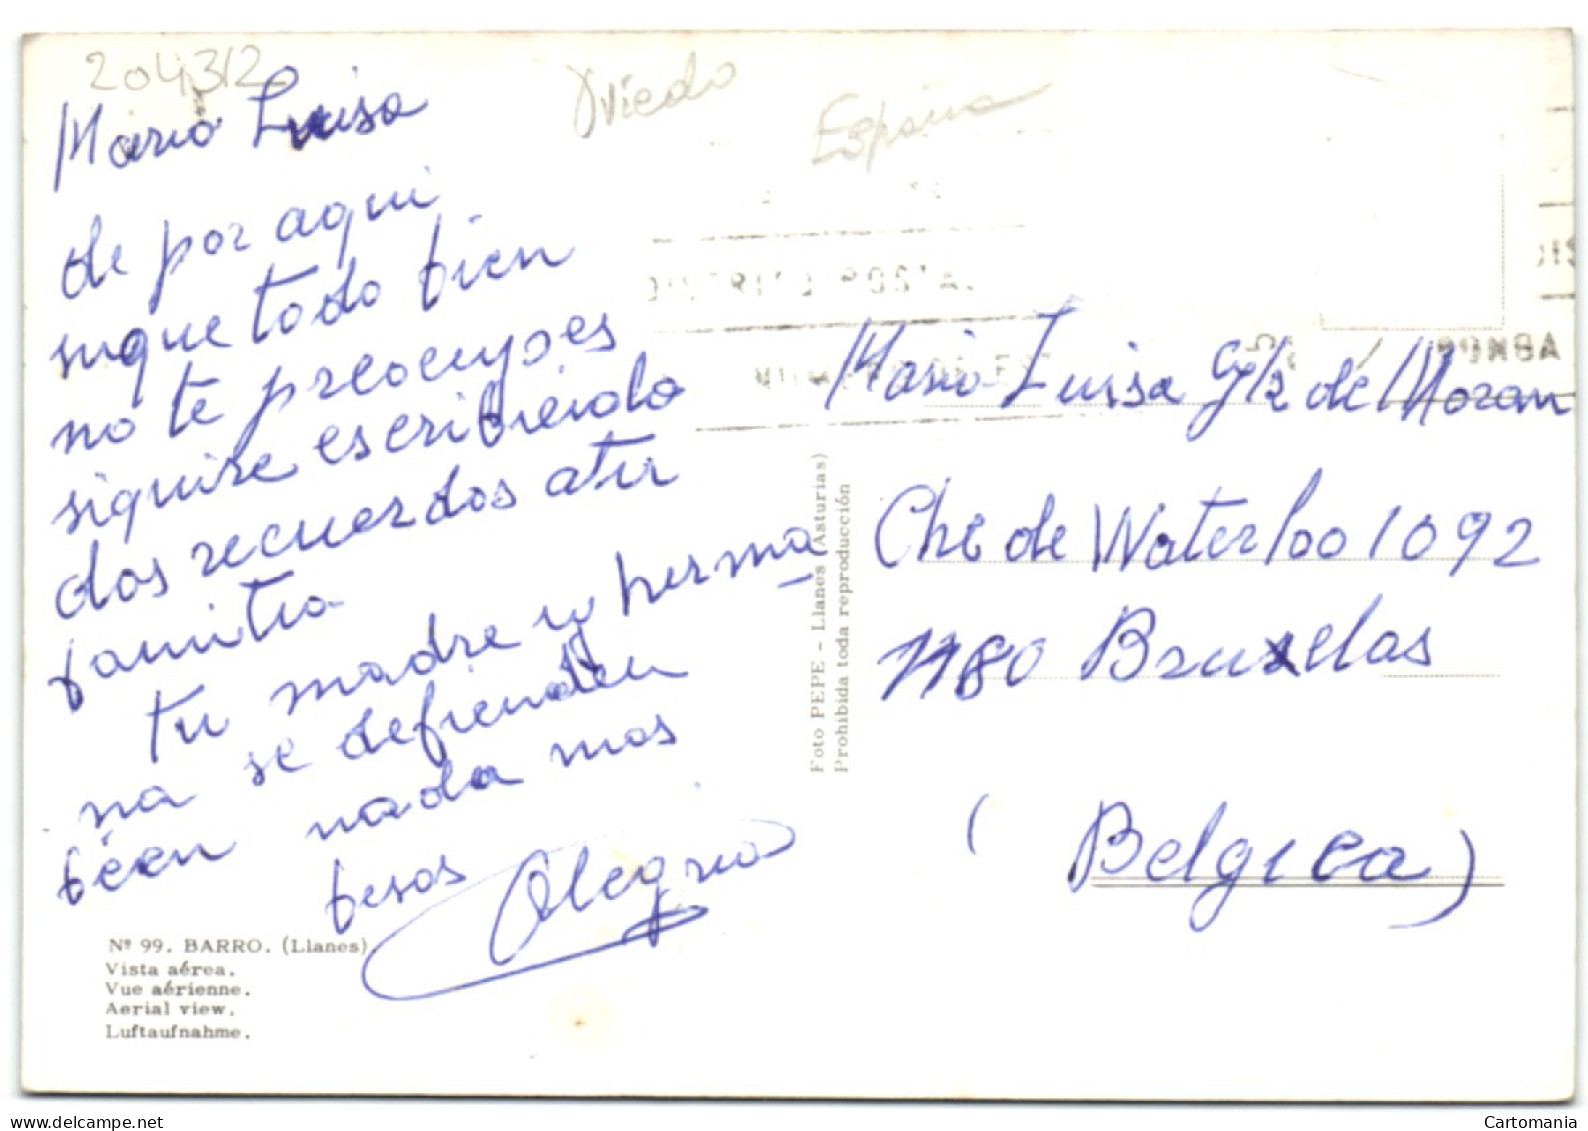 204312
Oviedo
España
Maria Luisa
de por aqui
sigue todo bien
no te preocupes
siguire escribiendo
dos recuerdos a tu
familia
tu madre y herma
na se defienden
bien nada mas
besos Alegria
DISTRITO POSTAL
Maria Luisa de Moran
Che de Waterloo 1092
1180 Bruxelas
(Belgica)
Foto PEPE - Llanes (Asturias)
Prohibida toda reproducción
Nº 99. BARRO. (Llanes).
Vista aérea.
Vue aérienne.
Aerial view.
Luftaufnahme.
Cartomania